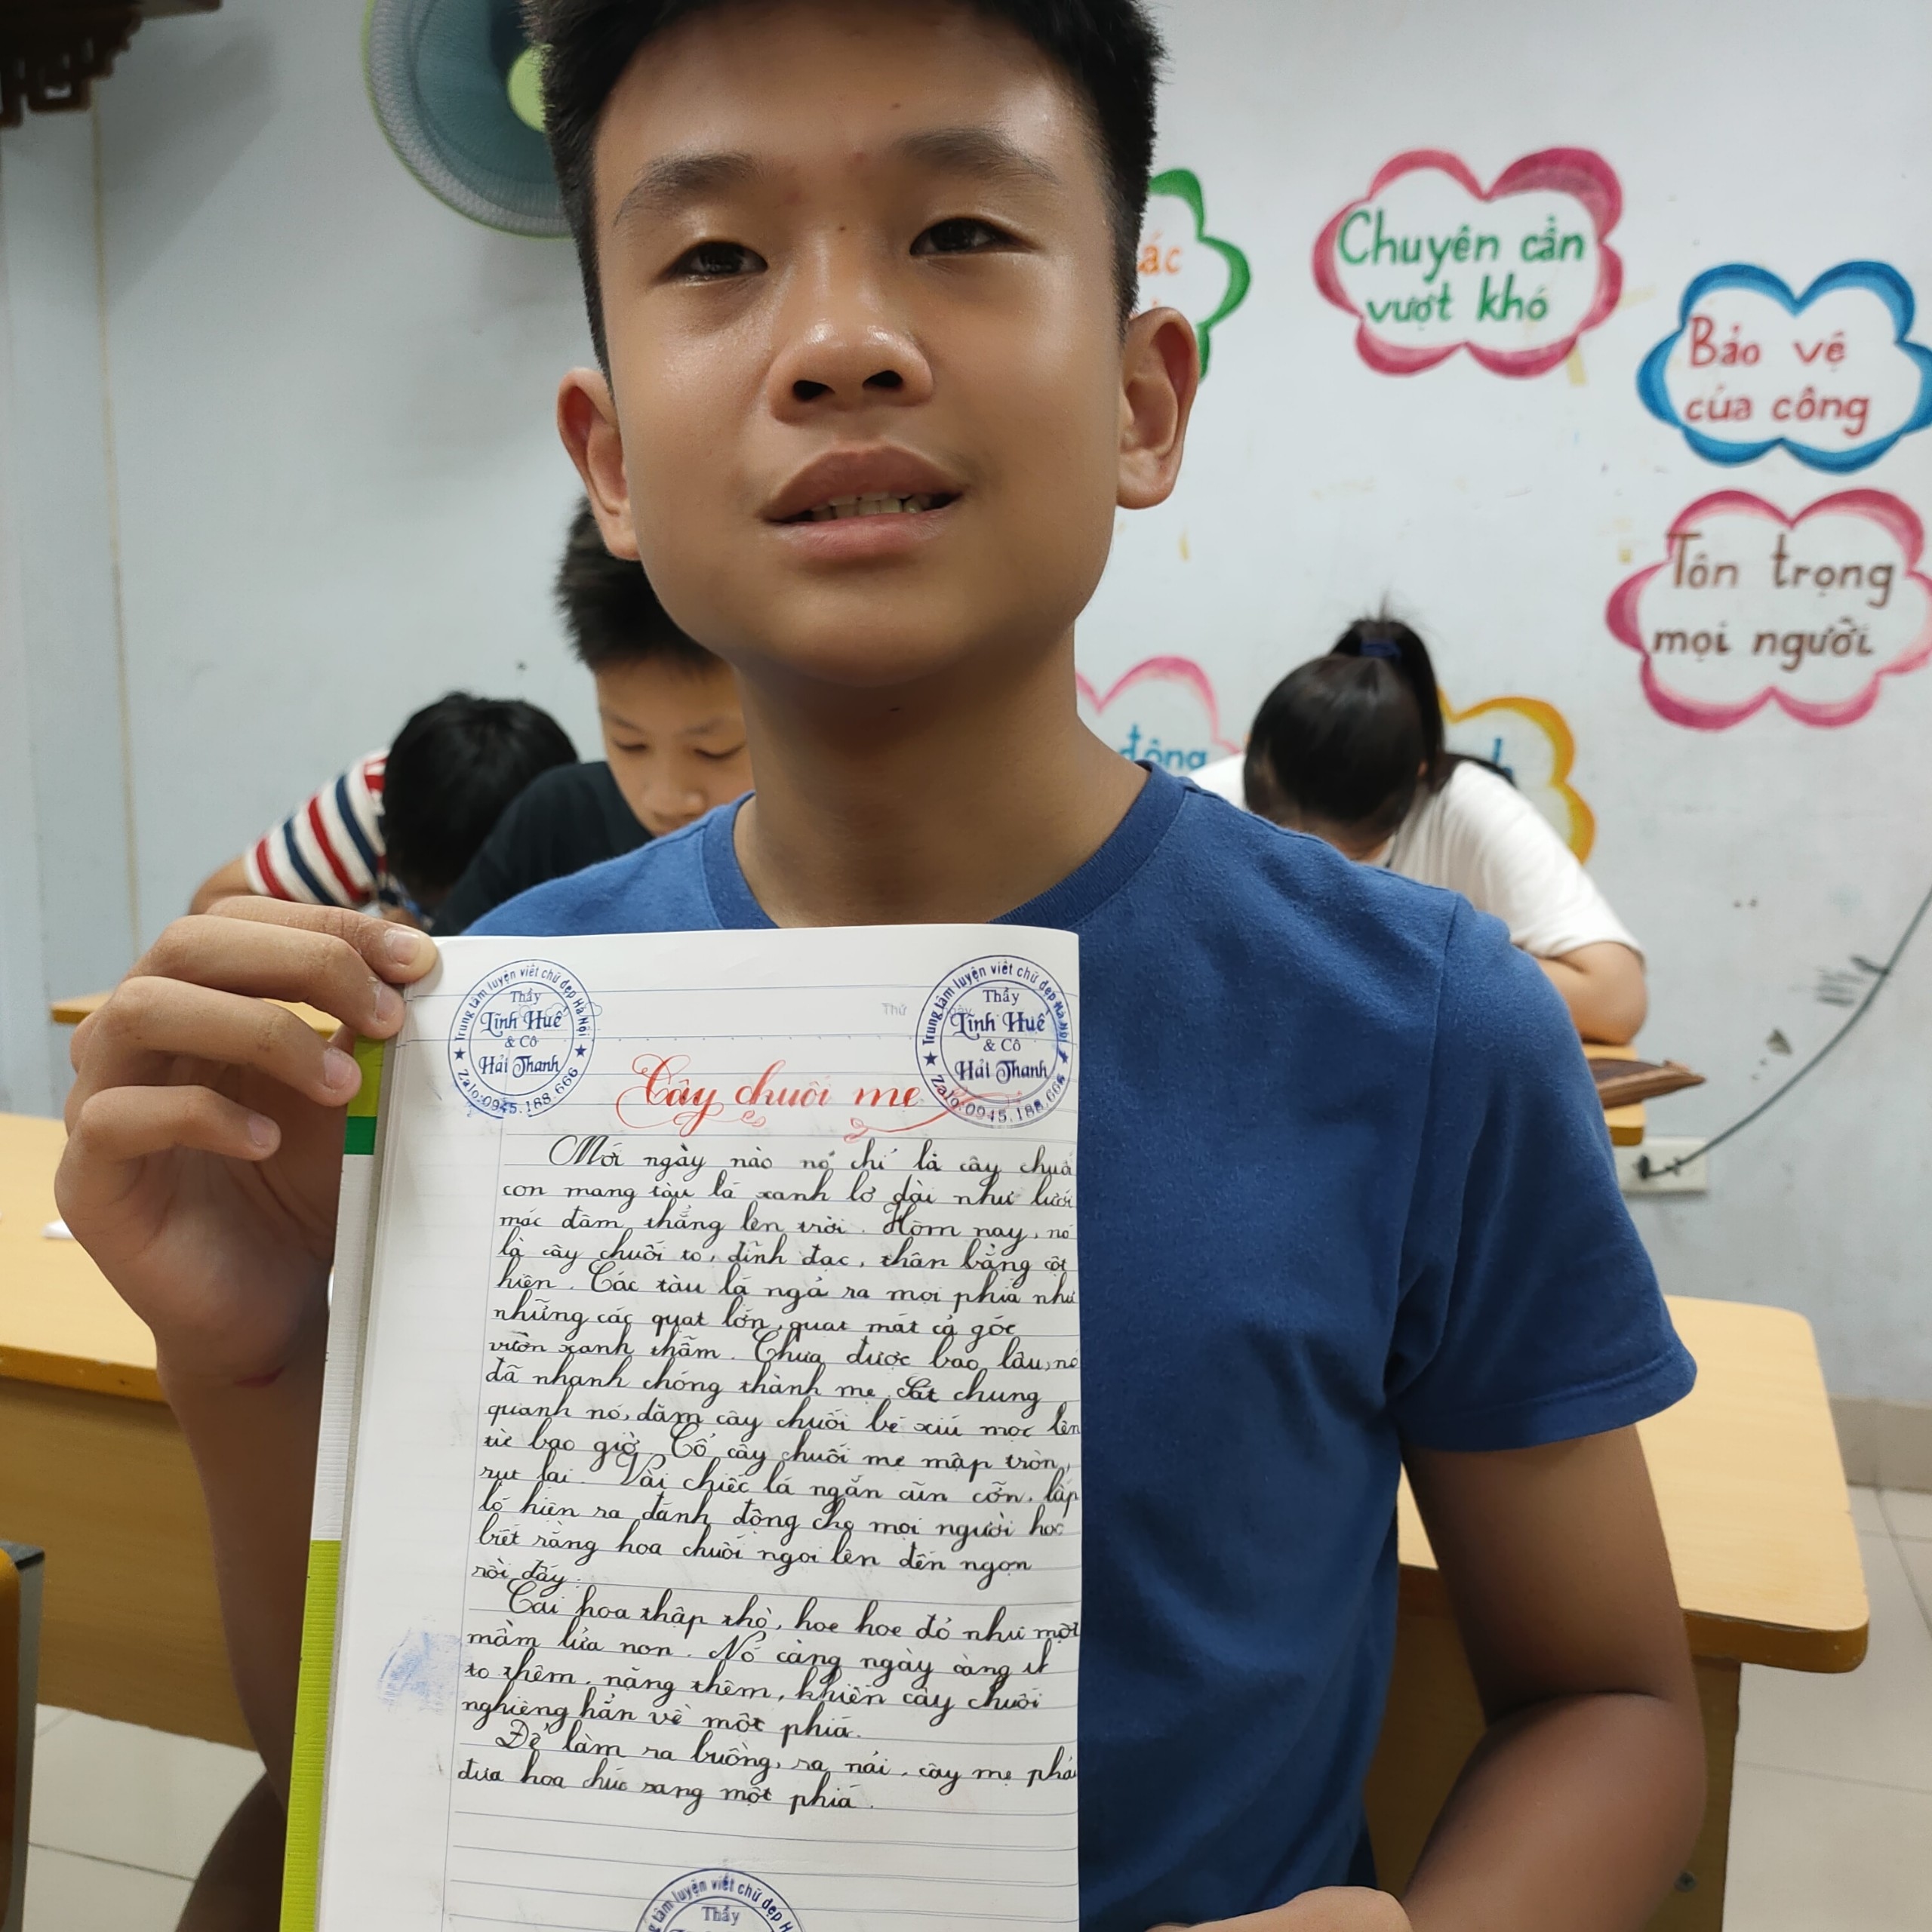 ác
Chuyên cần
vượt khó
Bảo vệ
của công
Tôn trọng
mọi người
động
Trung tâm luyện viết chữ đẹp Hà Nội
Thầy
Lĩnh Huế
& Cô
Hải Thanh
Zalo:0945.188.666
Thứ
Trung tâm luyện viết chữ đẹp Hà Nội
Thầy
Lĩnh Huế
& Cô
Hải Thanh
Zalo:0945.188.666
Cây chuối mẹ
Mới ngày nào nó chỉ là cây chuối
con mang tàu lá xanh lơ dài như lưỡi
mác đâm thẳng lên trời. Hôm nay, nó
là cây chuối to, đĩnh đạc, thân bằng cột
hiên. Các tàu lá ngả ra mọi phía như
những các quạt lớn, quạt mát cả góc
vườn xanh thẫm. Chưa được bao lâu, nó
đã nhanh chóng thành mẹ. Sát chung
quanh nó, dăm cây chuối bé xíu mọc lên
từ bao giờ. Cổ cây chuối mẹ mập tròn,
rụt lại. Vài chiếc lá ngắn cũn cỡn, lấp
ló hiện ra đánh động cho mọi người
biết rằng hoa chuối ngoi lên đến ngọn
rồi đấy.
Cái hoa thập thò, hoe hoe đỏ như một
mầm lửa non. Nó càng ngày càng
to thêm, nặng thêm, khiến cây chuối
nghiêng hẳn về một phía.
Để làm ra buồng, ra nải, cây mẹ phải
đưa hoa chúc sang một phía.
luyện viết chữ đẹp
Thầy